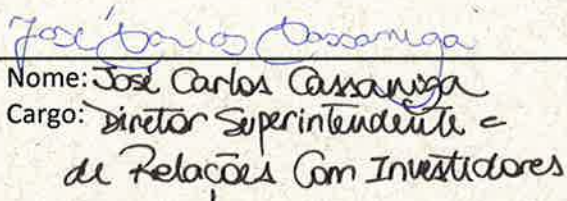 José Carlos Cassaniga
Nome: José Carlos Cassaniga
Cargo: Diretor Superintendente e
de Relações Com Investidores